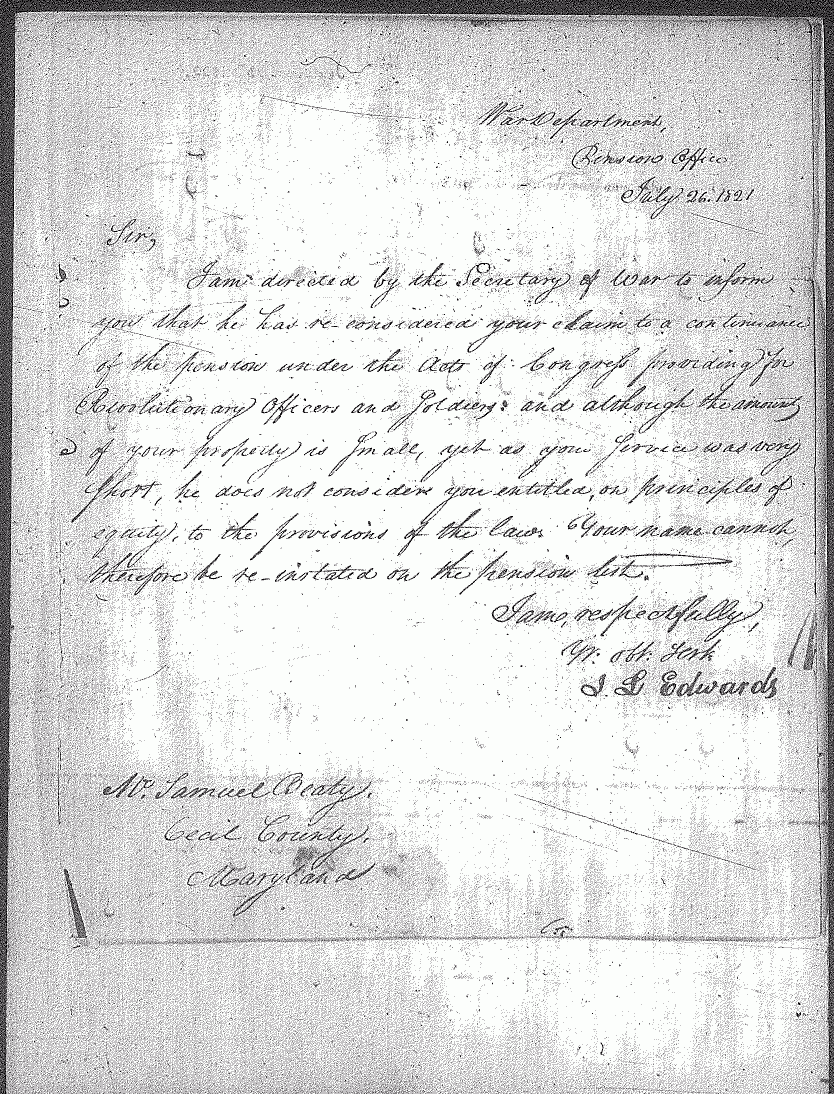 War Department,
Pension Office
July 26. 1821
Sir,
I am directed by the Secretary of War to inform
you that he has re-considered your claim to a continuance
of the pension under the Acts of Congress providing for
Revolutionary Officers and Soldiers: and although the amount
of your property is small, yet as your service was very
short, he does not consider you entitled, on principles of
equity, to the provisions of the laws. Your name cannot,
therefore be re-instated on the pension list.
I am, respectfully,
Yr. obt. Servt.
J L Edwards
Mr. Samuel Beaty.
Cecil County.
Maryland